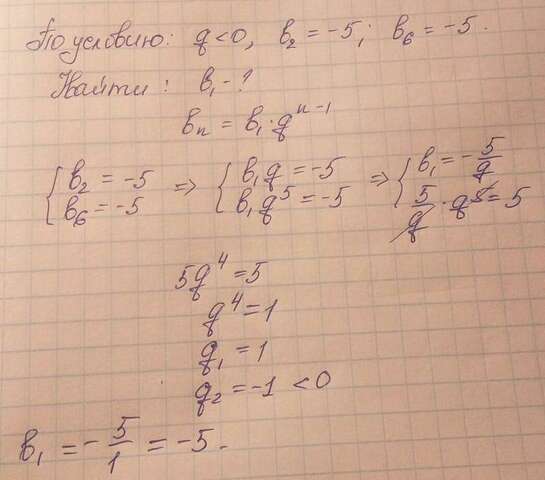 По условию: q<0, b₂ = -5; b₆ = -5.
Найти: b₁ - ?
bₙ = b₁·qⁿ⁻¹
{ b₂ = -5 => { b₁q = -5 => { b₁ = -5/q
b₆ = -5 b₁q⁵ = -5 5/q · q⁵ = 5
5q⁴ = 5
q⁴ = 1
q₁ = 1
q₂ = -1 < 0
b₁ = -5/1 = -5.